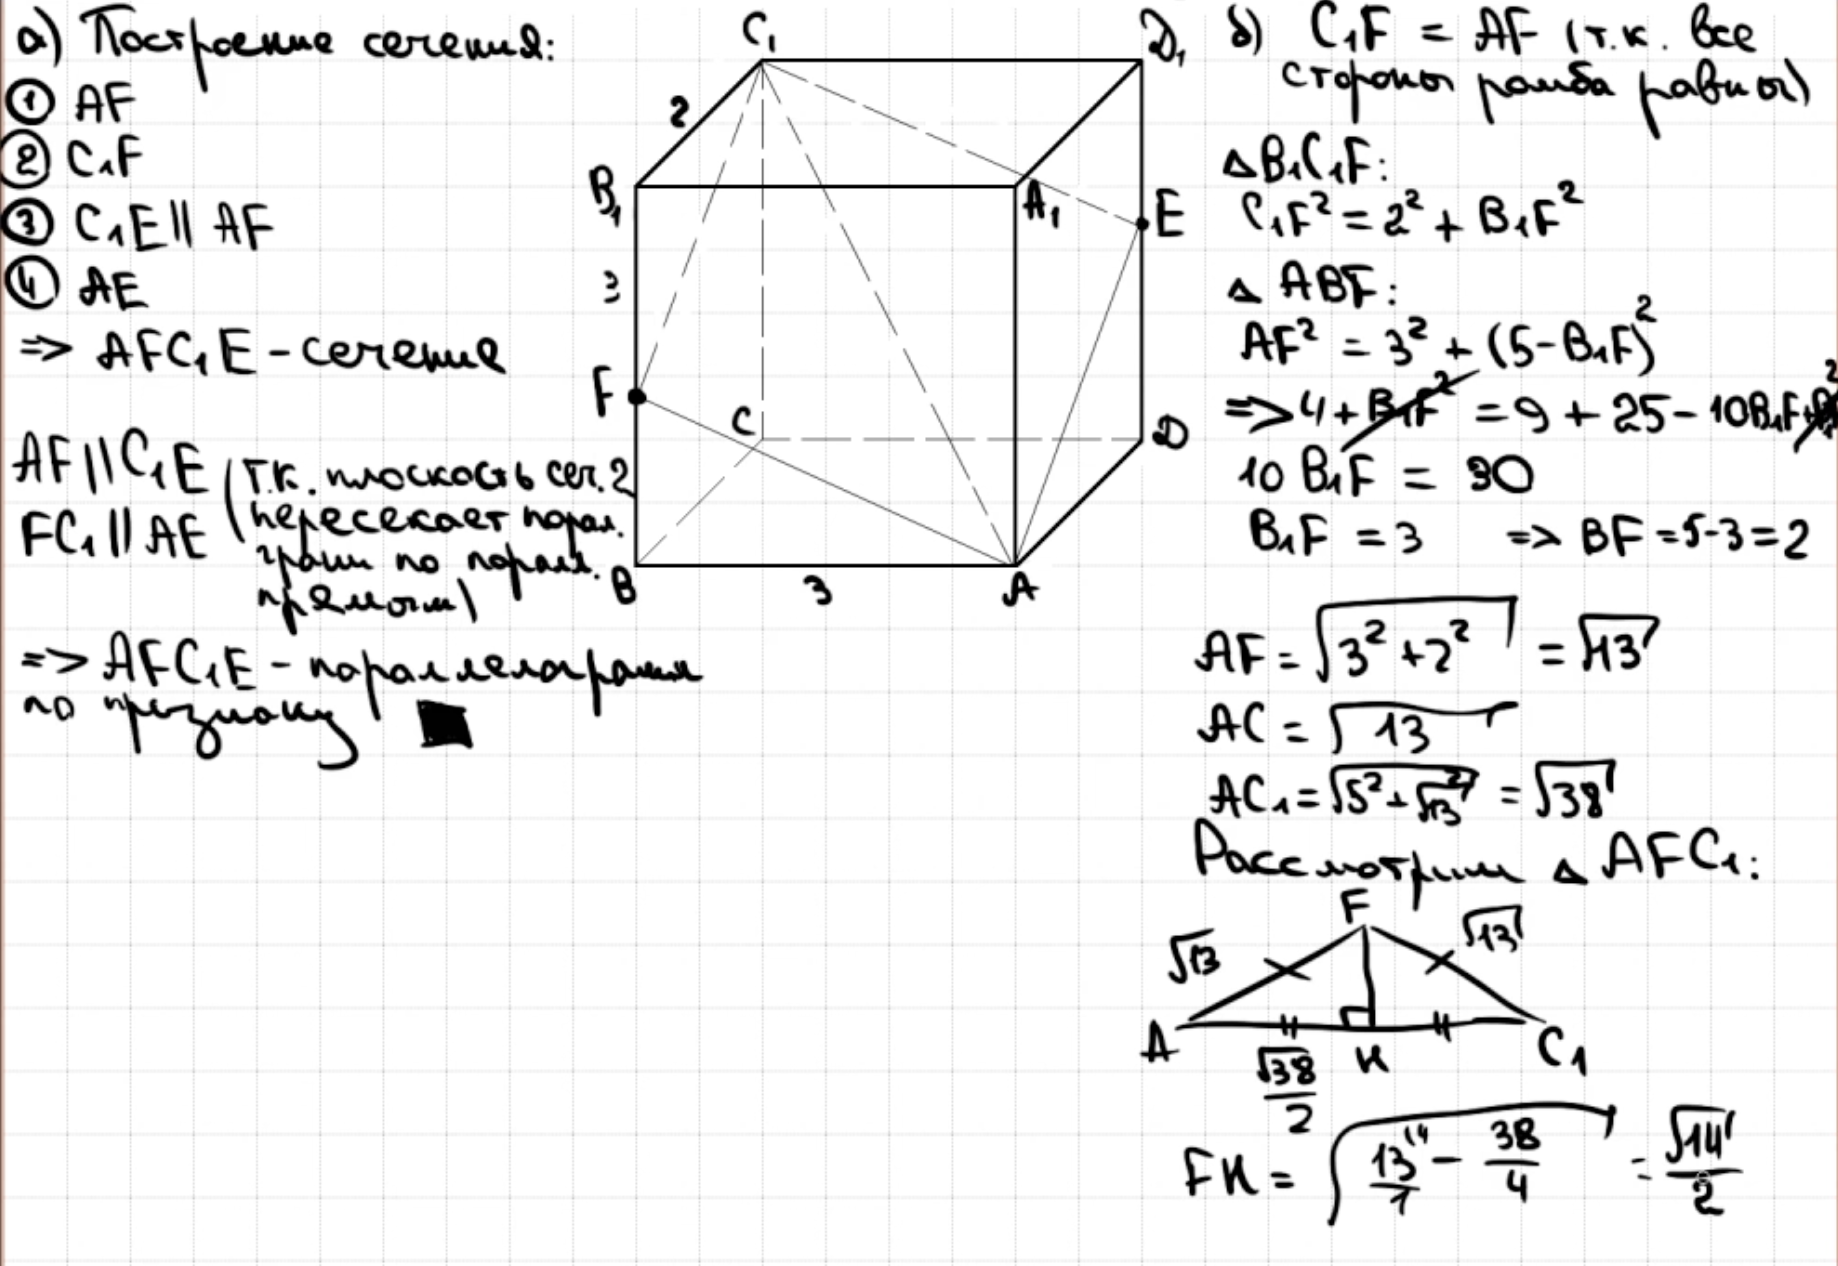 а) Построение сечения:
① AF
② C₁F
③ C₁E || AF
④ AE
=> AFC₁E - сечение
AF || C₁E (т.к. плоскость сеч.
FC₁ || AE пересекает парал.
грани по паралл.
прямым)
=> AFC₁E - параллелограмм
по признаку
C₁
D₁
2
B₁
A₁
E
3
F
C
D
2
B
3
A
б) C₁F = AF (т.к. все
стороны ромба равны)
△B₁C₁F:
C₁F² = 2² + B₁F²
△ ABF:
AF² = 3² + (5-B₁F)²
=> 4 + B₁F² = 9 + 25 - 10B₁F + B₁F²
10 B₁F = 30
B₁F = 3 => BF = 5-3 = 2
AF = √(3² + 2²) = √13
AC = √13
AC₁ = √(5² + √13²) = √38
Рассмотрим △ AFC₁:
F
√13 √13
A H C₁
√38/2
FH = √(13/1 ⁽⁴ - 38/4) = √14/2